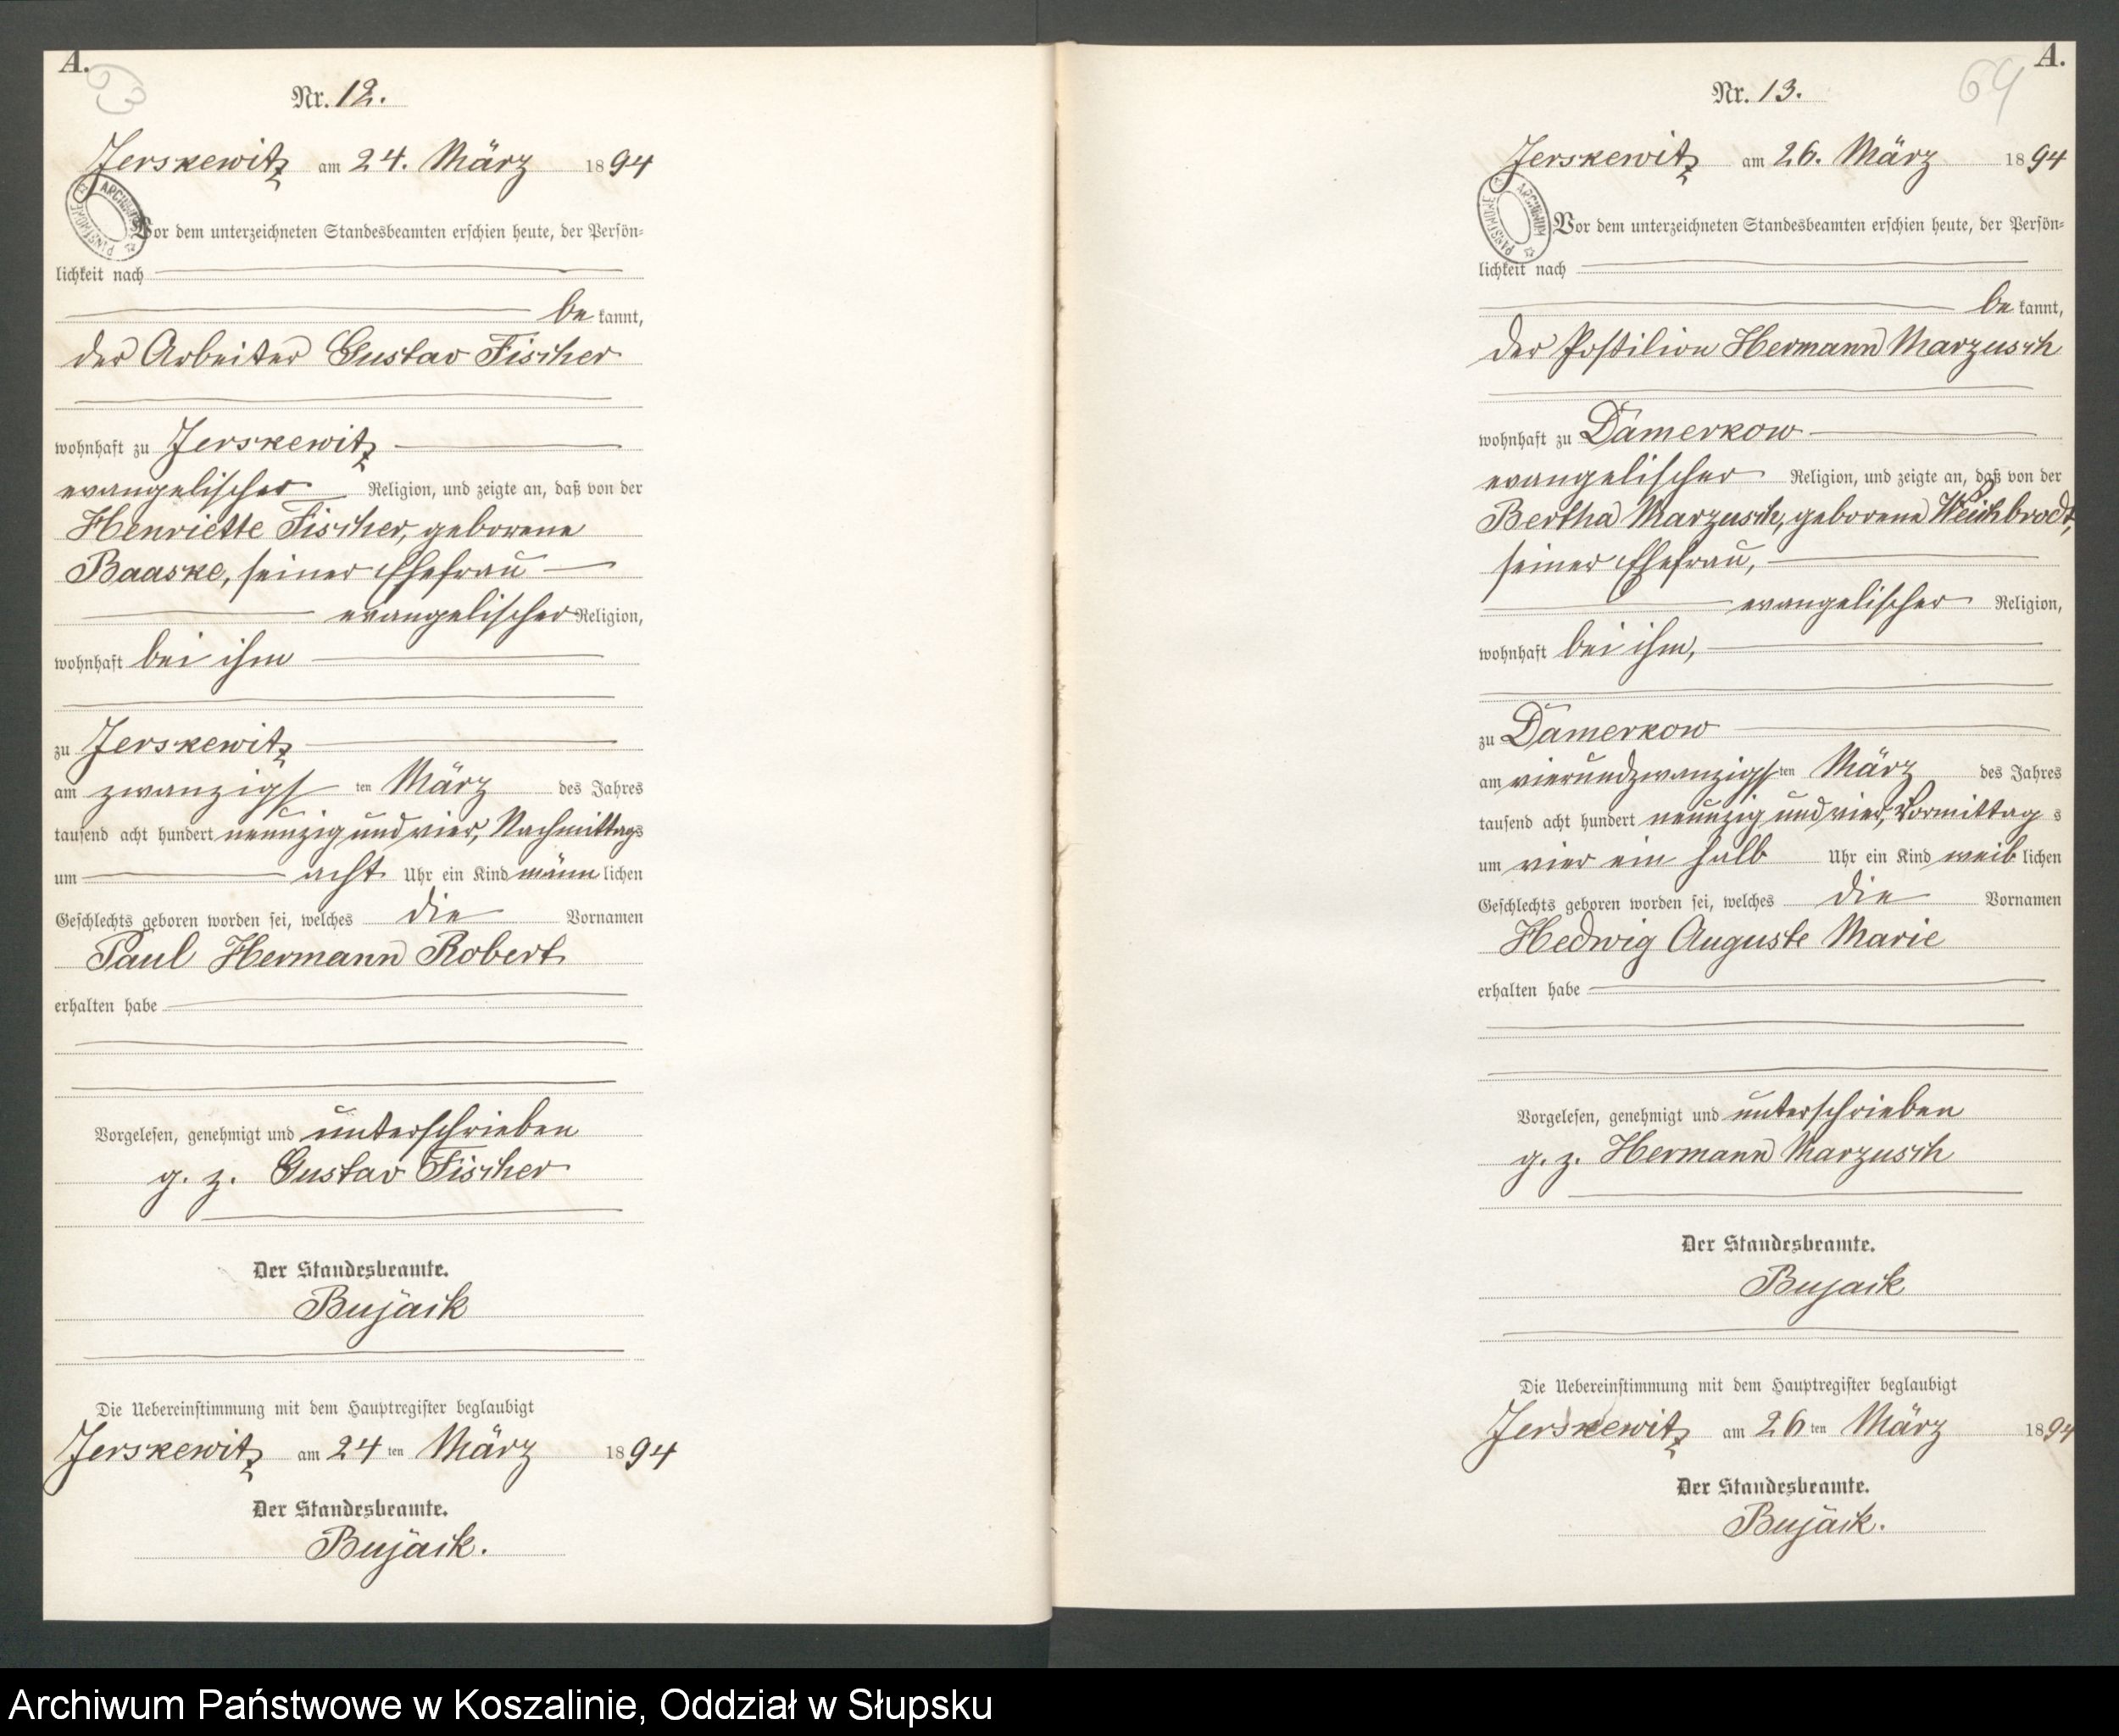 A.
63
Nr. 12.
Jerskewitz am 24. März 1894
Vor dem unterzeichneten Standesbeamten erschien heute, der Persön-
lichkeit nach
be kannt,
der Arbeiter Gustav Fischer
wohnhaft zu Jerskewitz
evangelischer Religion, und zeigte an, daß von der
Henriette Fischer, geborene
Baaske, seiner Ehefrau
evangelischer Religion,
wohnhaft bei ihm
zu Jerskewitz
am zwanzigsten März des Jahres
tausend acht hundert neunzig und vier, Nachmittags
um acht Uhr ein Kind männlichen
Geschlechts geboren worden sei, welches die Vornamen
Paul Hermann Robert
erhalten habe
Vorgelesen, genehmigt und unterschrieben
g. z. Gustav Fischer
Der Standesbeamte.
Bujack
Die Uebereinstimmung mit dem Hauptregister beglaubigt
Jerskewitz am 24ten März 1894
Der Standesbeamte.
Bujack.
A.
64
Nr. 13.
Jerskewitz am 26. März 1894
Vor dem unterzeichneten Standesbeamten erschien heute, der Persön-
lichkeit nach
be kannt,
der Postilion Hermann Marzusch
wohnhaft zu Damerkow
evangelischer Religion, und zeigte an, daß von der
Bertha Marzusch, geborene Weichbrodt,
seiner Ehefrau,
evangelischer Religion,
wohnhaft bei ihm,
zu Damerkow
am vierundzwanzigsten März des Jahres
tausend acht hundert neunzig und vier, Vormittags
um vier ein halb Uhr ein Kind weiblichen
Geschlechts geboren worden sei, welches die Vornamen
Hedwig Auguste Marie
erhalten habe
Vorgelesen, genehmigt und unterschrieben
g. z. Hermann Marzusch
Der Standesbeamte.
Bujack
Die Uebereinstimmung mit dem Hauptregister beglaubigt
Jerskewitz am 26ten März 1894
Der Standesbeamte.
Bujack.
ARCHIWUM PAŃSTWOWE
ARCHIWUM PAŃSTWOWE
Archiwum Państwowe w Koszalinie, Oddział w Słupsku